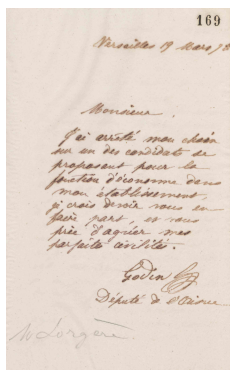 169
Versailles 19 Mars 7
Monsieur,
J'ai arrêté mon choix
sur un des candidats se
proposant pour la
fonction d'économe dans
mon établissement,
je crois devoir vous en
faire part, et vous
prie d'agréer mes
parfaites civilités.
Godin
Député de l'Aisne